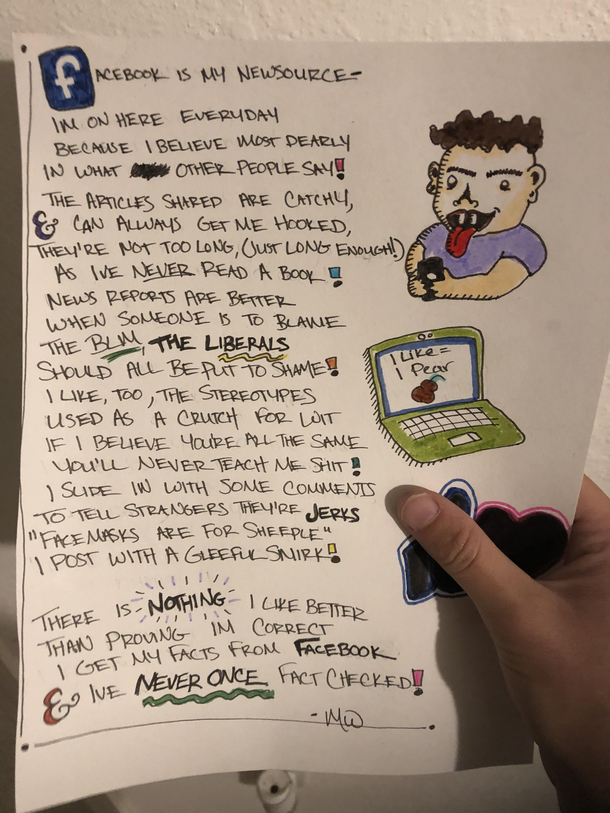 FACEBOOK IS MY NEWSOURCE-
IM ON HERE EVERYDAY
BECAUSE I BELIEVE MOST DEARLY
IN WHAT OTHER PEOPLE SAY!
THE ARTICLES SHARED ARE CATCHY,
& CAN ALLWAYS GET ME HOOKED,
THEY'RE NOT TOO LONG, (JUST LONG ENOUGH!)
AS IVE NEVER READ A BOOK!
NEWS REPORTS ARE BETTER
WHEN SOMEONE IS TO BLAME
THE BLM, THE LIBERALS
SHOULD ALL BE PUT TO SHAME!
I LIKE, TOO, THE STEREOTYPES
USED AS A CRUTCH FOR WIT
IF I BELIEVE YOU'RE ALL THE SAME
YOU'LL NEVER TEACH ME SHIT!
I SLIDE IN WITH SOME COMMENTS
TO TELL STRANGERS THEY'RE JERKS
"FACEMASKS ARE FOR SHEEPLE"
I POST WITH A GLEEFUL SMIRK!
THERE IS NOTHING I LIKE BETTER
THAN PROVING IM CORRECT
I GET MY FACTS FROM FACEBOOK
& IVE NEVER ONCE FACT CHECKED!
-MW
1 Like =
1 Pear